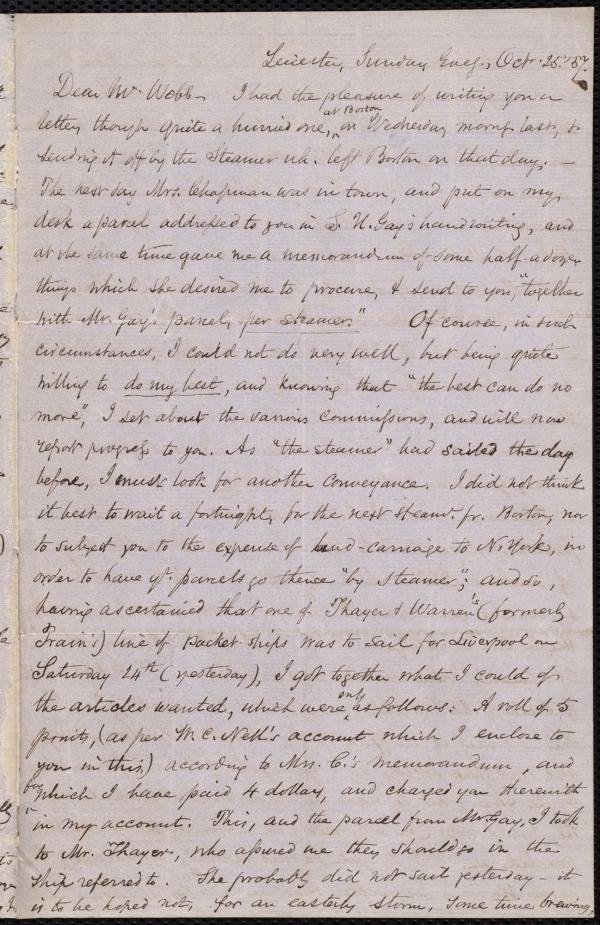 Leicester, Sunday Eveg., Oct. 25. '57.
Dear Mr. Webb— I had the pleasure of writing you a
at Boston
letter, though quite a hurried one, on Wednesday morng. last, &
sending it off by the Steamer wh. left Boston on that day. —
The next day Mrs. Chapman was in town, and put on my
desk a parcel addressed to you in S. H. Gay's handwriting, and
at the same time gave me a memorandum of some half-a-dozen
things which she desired me to procure, & send to you, "together
with Mr. Gay's parcel, per steamer." Of course, in such
circumstances, I could not do very well, but being quite
willing to do my best, and knowing that "the best can do no
more", I set about the various commissions, and will now
report progress to you. As "the steamer" had sailed the day
before, I must look for another conveyance. I did not think
it best to wait a fortnight, for the next steamr. fr. Boston, nor
to subject you to the expense of land-carriage to N. York, in
order to have yr. parcels go thence "by steamer"; and so,
having ascertained that one of Thayer & Warren's (formerly
Train's) line of packet ships was to sail for Liverpool on
Saturday 24th (yesterday), I got together what I could of
the articles wanted, which were only as follows: A roll of 5
prints, (as per W. C. Nell's account which I enclose to
you in this,) according to Mrs. C.'s memorandum, and
for which I have paid 4 dollars, and charged you therewith
in my account. This, and the parcel from Mr. Gay, I took
to Mr. Thayer, who assured me they should go in the
ship referred to. She probably did not sail yesterday — it
is to be hoped not, for an easterly storm, some time brewing,